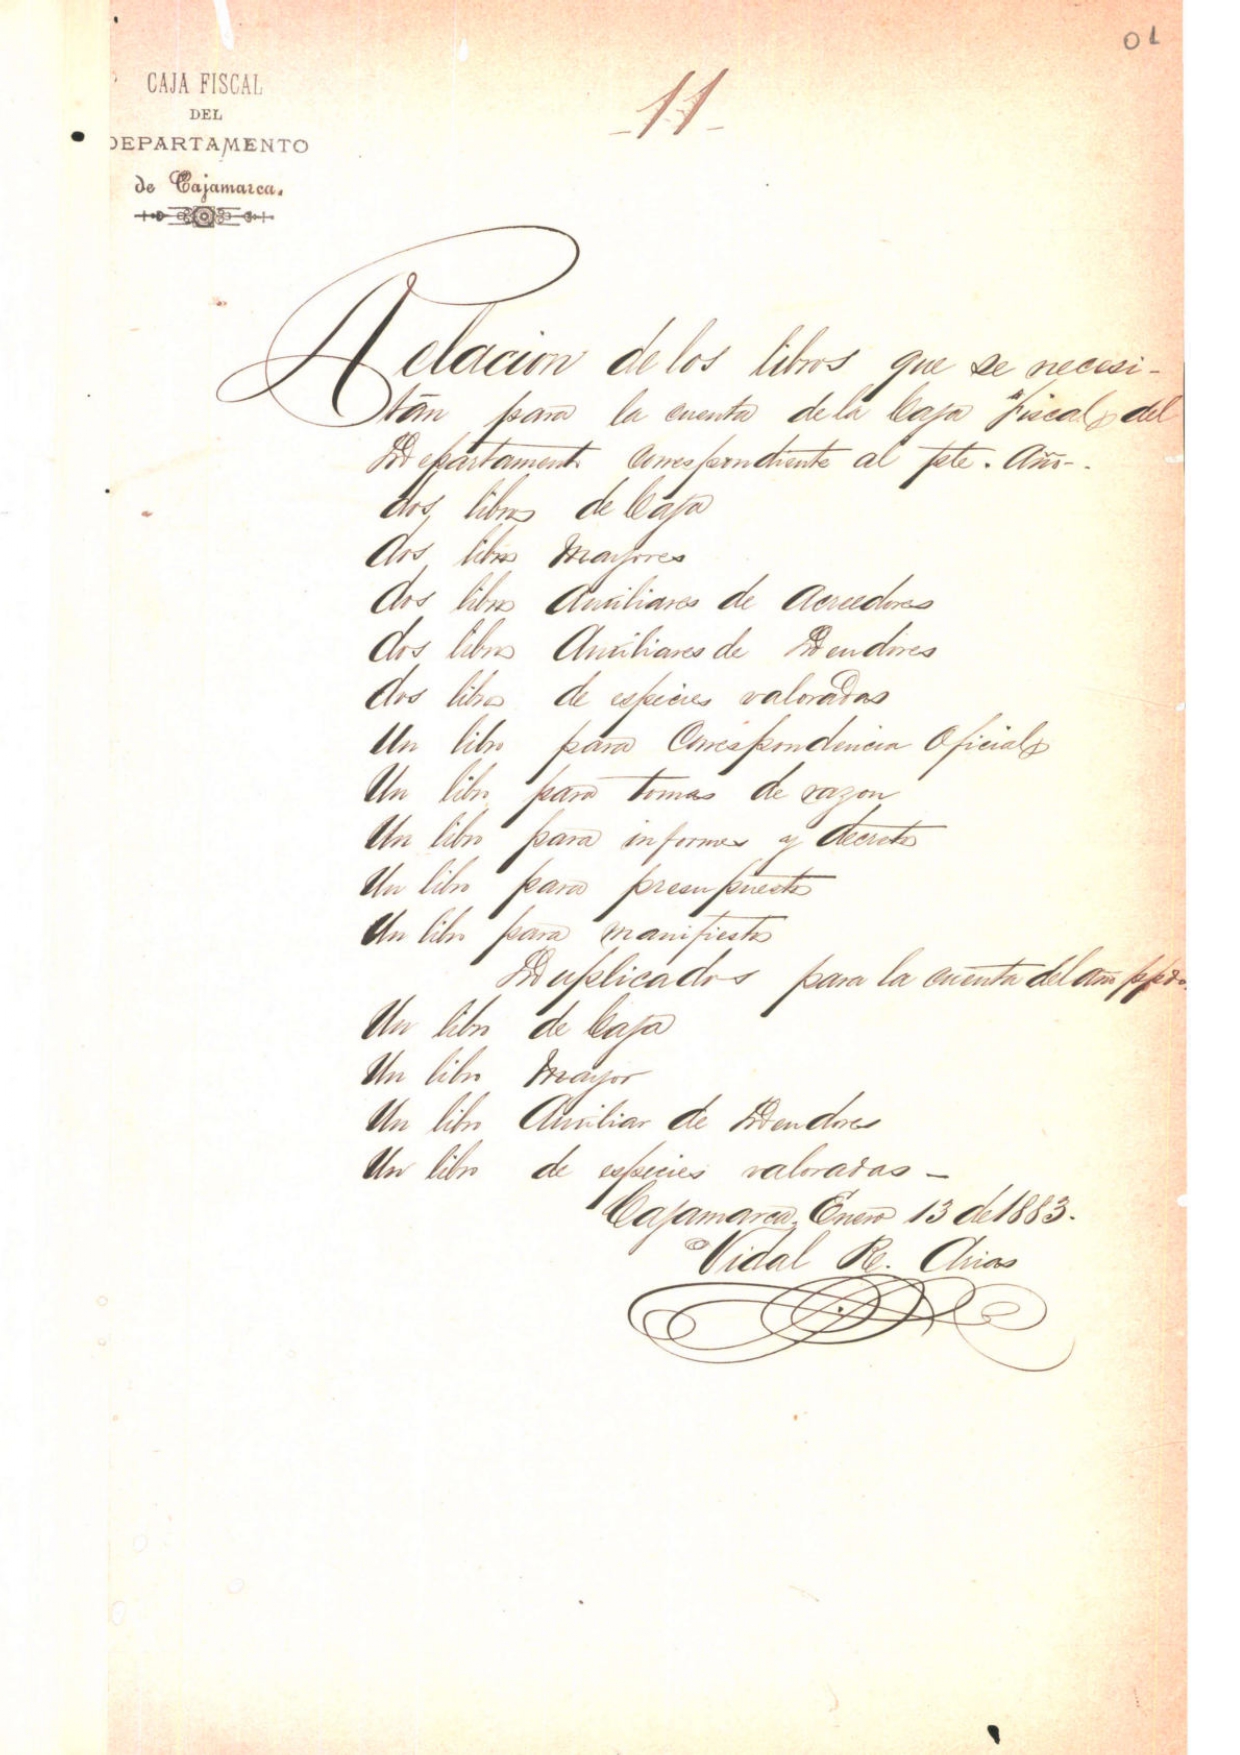 01
CAJA FISCAL
DEL
DEPARTAMENTO
de Cajamarca.
-11-
Relacion de los libros que se necesi-
tan para la cuenta de la Caja Fiscal del
Departamento correspondiente al pte. Año-.
dos libros de Caja
dos libros Mayores
dos libros Auxiliares de Acreedores
dos libros Auxiliares de Deudores
dos libros de especies valoradas
Un libro para Correspondencia Oficial
Un libro para tomas de razon
Un libro para informes y decretos
Un libro para presupuestos
Un libro para manifiestos
Duplicados para la cuenta del año ppdo.
Un libro de Caja
Un libro Mayor
Un libro Auxiliar de Deudores
Un libro de especies valoradas -
Cajamarca, Enero 13 de 1883.
Vidal R. Arias